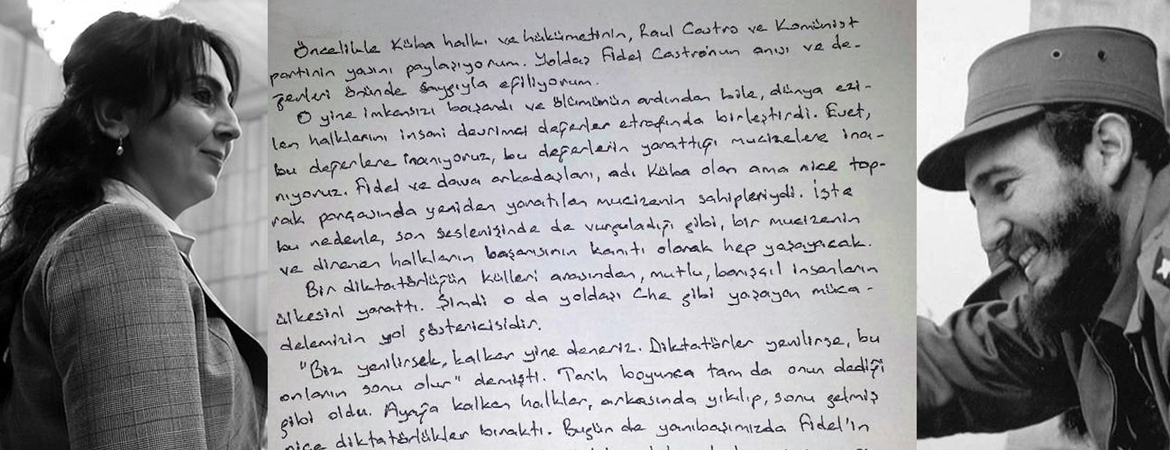 Öncelikle Küba halkı ve hükümetinin, Raul Castro ve Komünist
partinin yasını paylaşıyorum. Yoldaş Fidel Castro'nun anısı ve de-
ğerleri önünde saygıyla eğiliyorum.
O yine imkansızı başardı ve ölümünün ardından bile, dünya ezi-
len halklarını insani devrimci değerler etrafında birleştirdi. Evet,
bu değerlere inanıyoruz, bu değerlerin yarattığı mucizelere ina-
nıyoruz. Fidel ve dava arkadaşları, adı Küba olan ama nice top-
rak parçasında yeniden yaratılan mucizenin sahipleriydi. İşte
bu nedenle, son seslenişinde de vurguladığı gibi, bir mucizenin
ve direnen halkların başarısının kanıtı olarak hep yaşayacak.
Bir diktatörlüğün külleri arasından, mutlu, barışçıl insanların
ülkesini yarattı. Şimdi o da yoldaşı Che gibi yaşayan müca-
delemizin yol göstericisidir.
"Biz yenilirsek, kalkar yine deneriz. Diktatörler yenilirse, bu
onların sonu olur" demişti. Tarih boyunca tam da onun dediği
gibi oldu. Ayağa kalkan halklar, arkasında yıkılıp, sonu gelmiş
nice diktatörlükler bıraktı. Bugün de yanıbaşımızda Fidel'in